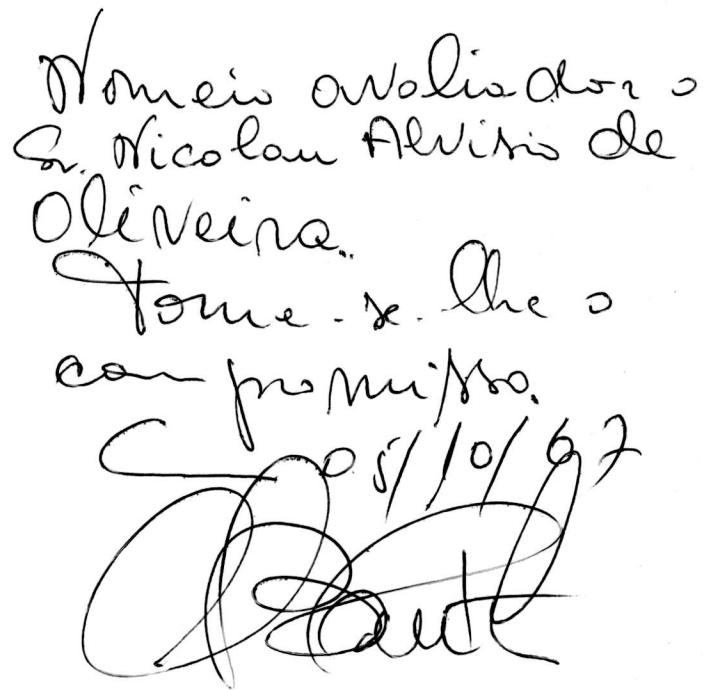 Nomeio avaliador o
Sr. Nicolau Alvisio de
Oliveira.
Tome-se-lhe o
compromisso.
05/10/67